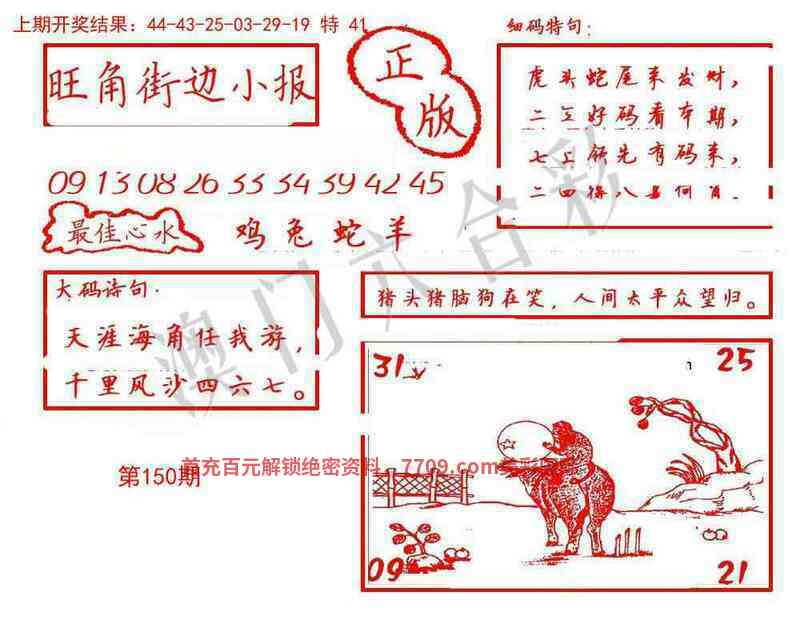 上期开奖结果：44-43-25-03-29-19 特 41
旺角街边小报
正版
细码特句：
虎头蛇尾来发财，
二五好码看本期，
七上领先有码来，
二四得八
09 13 08 26 33 34 39 42 45
最佳心水
鸡兔蛇羊
澳门六合彩
大码诗句·
天涯海角任我游，
千里风沙四六七。
猪头猪脑狗在笑，人间太平众望归。
31
25
首充百元解锁绝密资料，7709.com
第150期
09
21